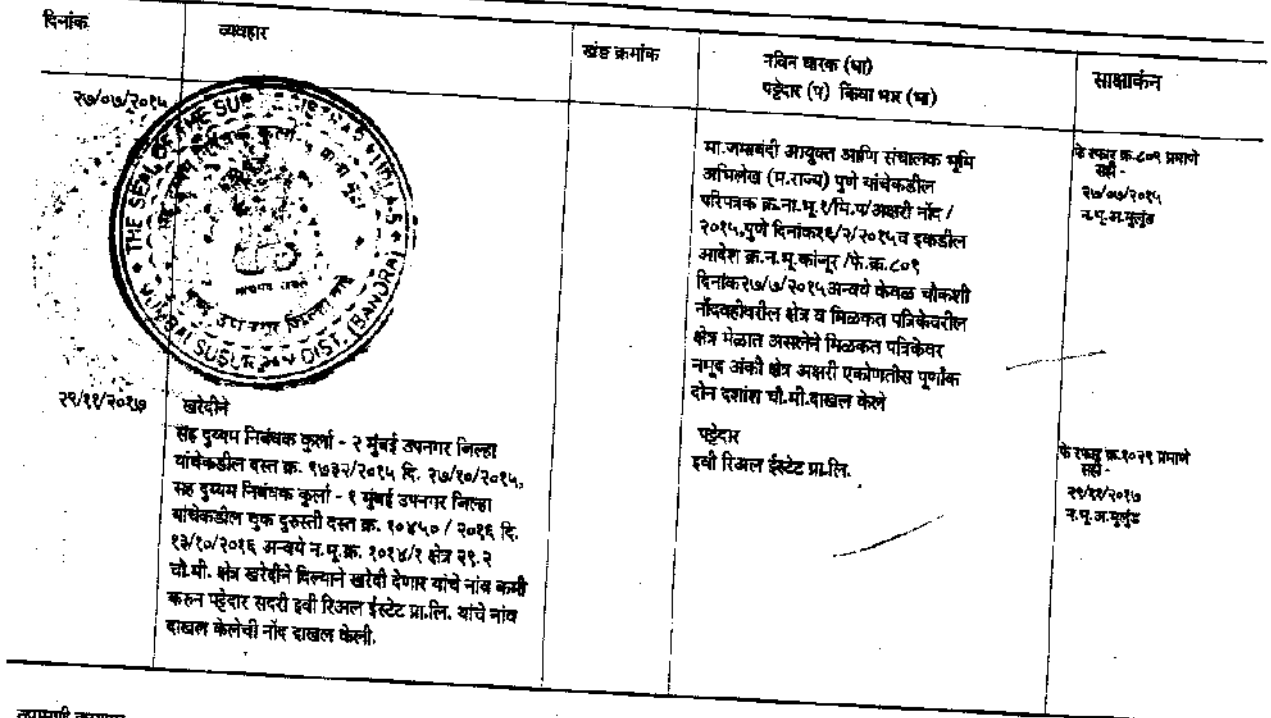 दिनांक
व्यवहार
खंड क्रमांक
नविन धारक (धा)
पट्टेदार (प) किंवा भार (भा)
साक्षाकंन
२७/०७/२०१५
THE SEAL OF THE SU
MUMBAI SUBURBAN DIST. (BANDRA)
मा.जमाबंदी आयुक्त आणि संचालक भूमि
अभिलेख (म.राज्य) पुणे यांचेकडील
परिपत्रक क्र.ना.भू.१/मि.प/अक्षरी नोंद /
२०१५,पुणे दिनांक१६/२/२०१५व इकडील
आदेश क्र.न.भू.कांजूर /फे.क्र.८०९
दिनांक२७/७/२०१५अन्वये केवळ चौकशी
नोंदवहीवरील क्षेत्र व मिळकत पत्रिकेवरील
क्षेत्र मेळात असलेने मिळकत पत्रिकेवर
नमूद अंकी क्षेत्र अक्षरी एकोणतीस पूर्णांक
दोन दशांश चौ.मी.दाखल केले
फेरफार क्र.८०९ प्रमाणे
सही -
२७/०७/२०१५
न.भू.अ.मुलुंड
२९/११/२०१७
खरेदीने
सह दुय्यम निबंधक कुर्ला - २ मुंबई उपनगर जिल्हा
यांचेकडील दस्त क्र. ९७३२/२०१५ दि. २७/१०/२०१५,
सह दुय्यम निबंधक कुर्ला - १ मुंबई उपनगर जिल्हा
यांचेकडील चुक दुरुस्ती दस्त क्र. १०४५० / २०१६ दि.
१३/१०/२०१६ अन्वये न.भू.क्र. १०१४/१ क्षेत्र २९.२
चौ.मी. क्षेत्र खरेदीने दिल्याने खरेदी देणार यांचे नांव कमी
करुन पट्टेदार सदरी इवी रिअल ईस्टेट प्रा.लि. यांचे नांव
दाखल केलेची नोंद दाखल केली.
पट्टेदार
इवी रिअल ईस्टेट प्रा.लि.
फेरफार क्र.१०२९ प्रमाणे
सही -
२९/११/२०१७
न.भू.अ.मुलुंड